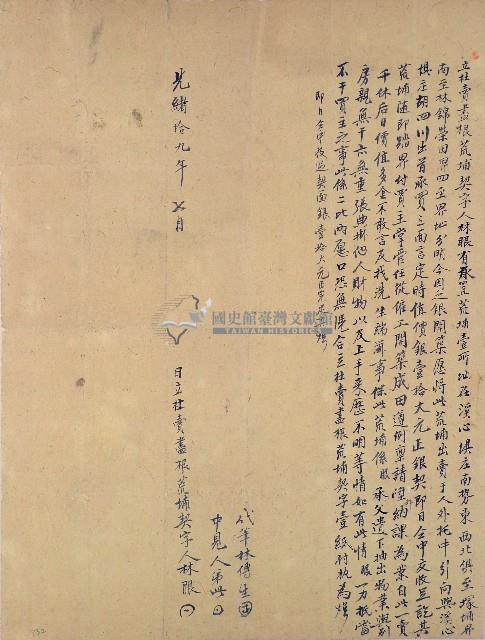 立杜賣盡根荒埔契字人林眼有承置荒埔壹所址在溪心埧庄南勢東西北俱至塚埔界
南至林錦榮田界四至界址分明今因乏銀開築愿將此荒埔出賣于人外托中引向與溪心
埧庄胡四川出首承買三面言定時值價銀壹拾大元正銀契即日仝中交收足訖其
荒埔隨即踏界付買主掌管任從僱工開築成田遵例稟請陞納課為業自此一賣
千休后日價值多金不敢言及找洗生端滋事保此荒埔係眼承父遺下抽出物業與別
房親無干亦無重張典掛他人財物以及上手來歷不明等情如有此情眼一力抵當
不干買主之事此係二比兩愿口恐無憑合立杜賣盡根荒埔契字壹紙付執為炤
即日仝中收過契面銀壹拾大元正完足炤
代筆林傳生
中見人
光緒拾九年 月 日立杜賣盡根荒埔契字人林眼
國史館臺灣文獻館
TAIWAN HISTORICA